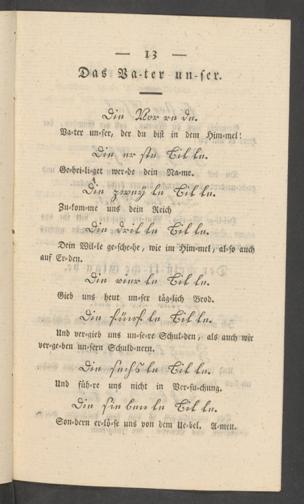 — 13 —
Das Va-ter un-ser.
Die Vor re de.
Va-ter un-ser, der du bist in dem Him-mel!
Die er ste Bit te.
Ge-hei-li-get wer-de dein Na-me.
Die zwey te Bit te.
Zu-kom-me uns dein Reich
Die drit te Bit te.
Dein Wil-le ge-sche-he, wie im Him-mel, al-so auch
auf Er-den.
Die vier te Bit te.
Gieb uns heut un-ser täg-lich Brod.
Die fünf te Bit te.
Und ver-gieb uns un-se-re Schul-den, als auch wir
ver-ge-ben un-sern Schuld-nern.
Die sechs te Bit te.
Und füh-re uns nicht in Ver-su-chung.
Die sie ben te Bit te.
Son-dern er-lö-se uns von dem Ue-bel. A-men.